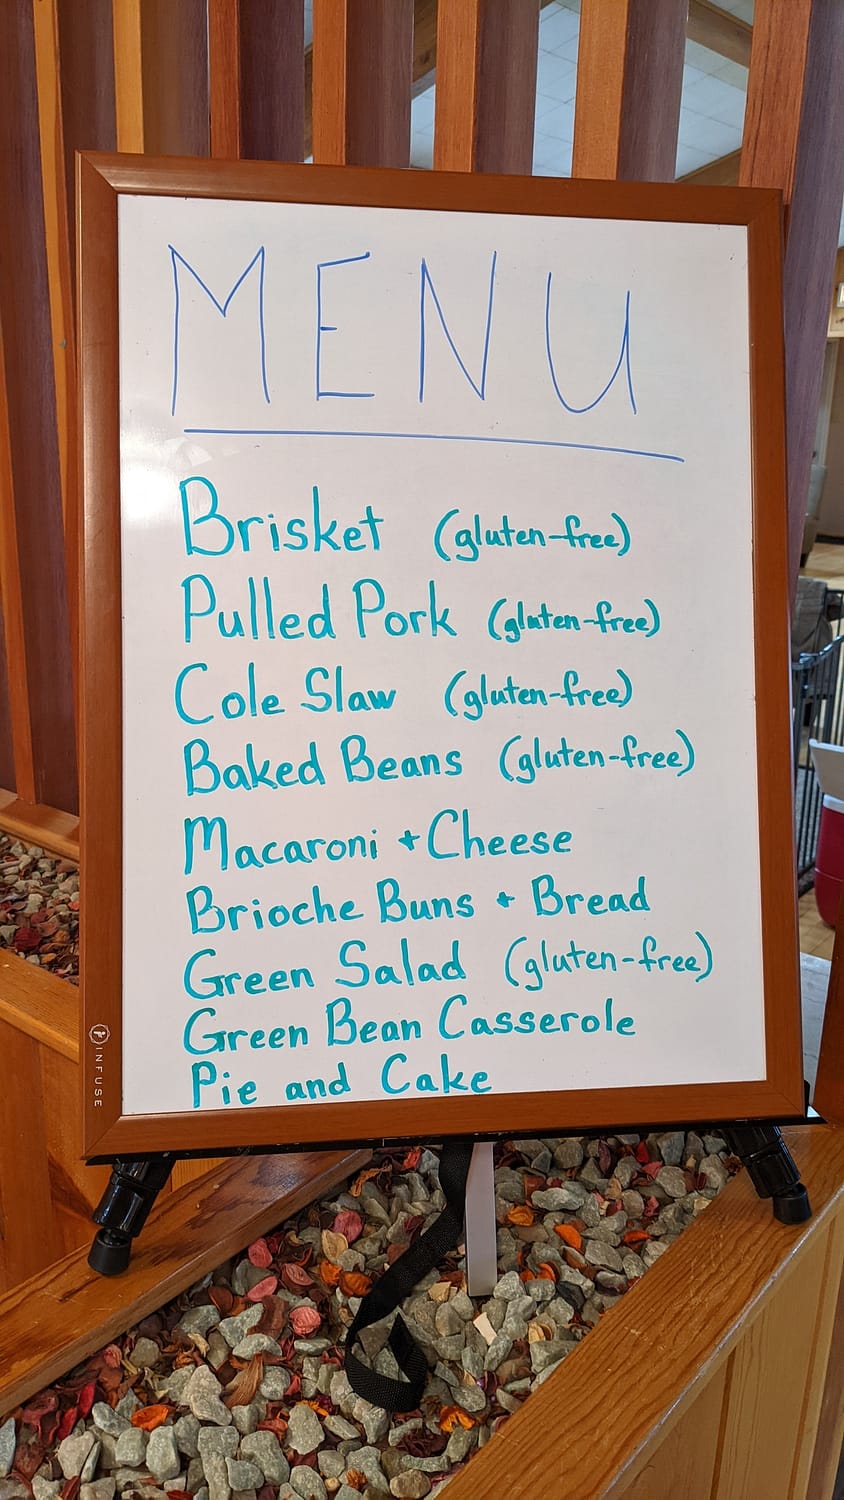 MENU
Brisket (gluten-free)
Pulled Pork (gluten-free)
Cole Slaw (gluten-free)
Baked Beans (gluten-free)
Macaroni + Cheese
Brioche Buns + Bread
Green Salad (gluten-free)
Green Bean Casserole
Pie and Cake
INFUSE